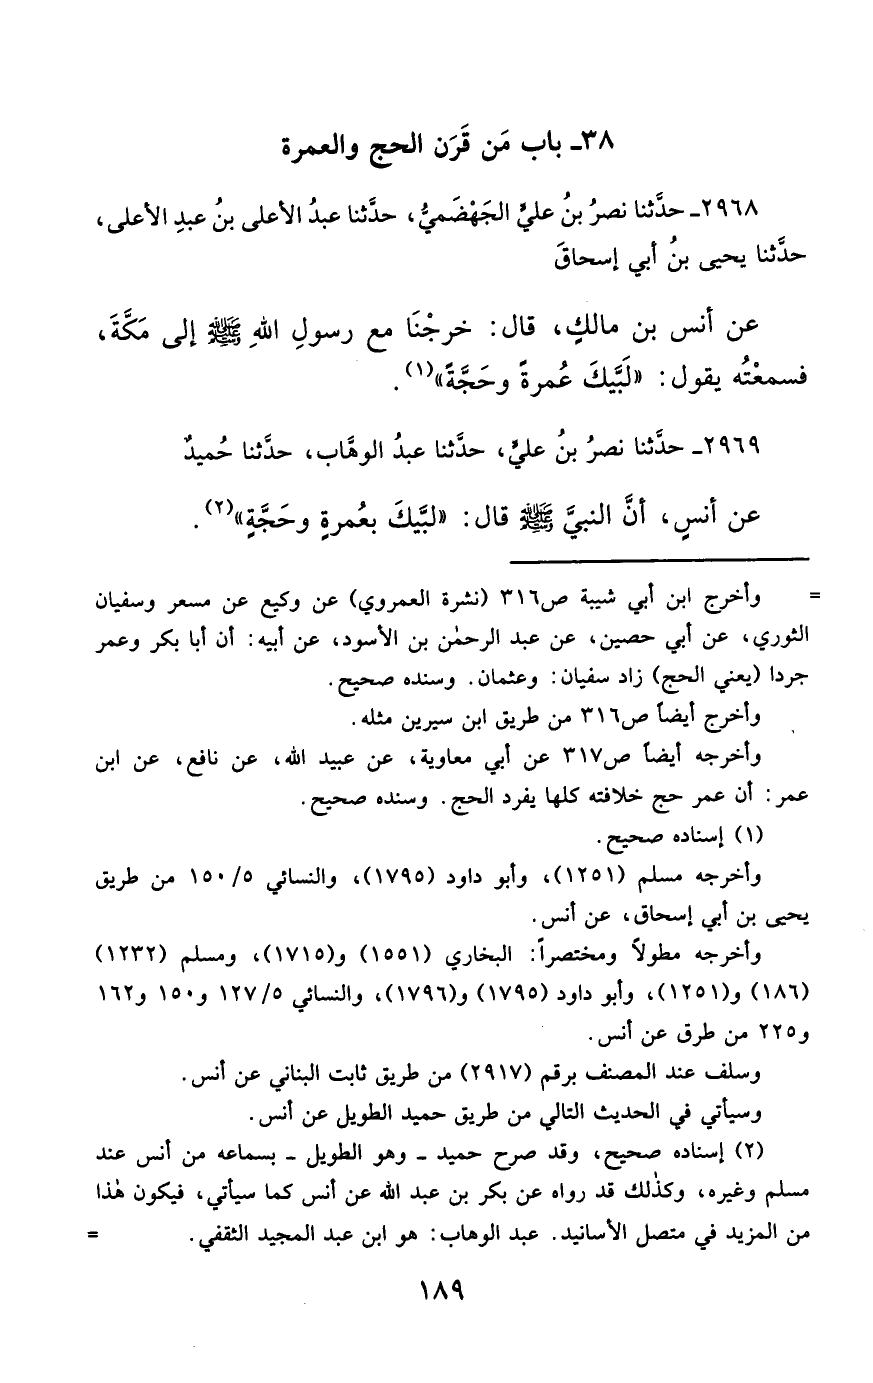 ٣٨ـ باب مَن قَرَن الحج والعمرة
٢٩٦٨ـ حدَّثنا نصرُ بنُ عليٍّ الجَهْضَميُّ، حدَّثنا عبدُ الأعلى بنُ عبدِ الأعلى،
حدَّثنا يحيى بنُ أبي إسحاقَ
عن أنس بن مالكٍ، قال: خرجْنَا مع رسولِ اللهِ ﷺ إلى مَكَّةَ،
فسمعْتُه يقول: «لَبَّيكَ عُمرةً وحَجَّةً»(١).
٢٩٦٩ـ حدَّثنا نصرُ بنُ عليٍّ، حدَّثنا عبدُ الوهَّاب، حدَّثنا حُميدٌ
عن أنسٍ، أنَّ النبيَّ ﷺ قال: «لبَّيكَ بعُمرةٍ وحَجَّةٍ»(٢).
= وأخرج ابن أبي شيبة ص٣١٦ (نشرة العمروي) عن وكيع عن مسعر وسفيان
الثوري، عن أبي حصين، عن عبد الرحمٰن بن الأسود، عن أبيه: أن أبا بكر وعمر
جردا (يعني الحج) زاد سفيان: وعثمان. وسنده صحيح.
وأخرج أيضاً ص٣١٦ من طريق ابن سيرين مثله.
وأخرجه أيضاً ص٣١٧ عن أبي معاوية، عن عبيد الله، عن نافع، عن ابن
عمر: أن عمر حج خلافته كلها يفرد الحج. وسنده صحيح.
(١) إسناده صحيح.
وأخرجه مسلم (١٢٥١)، وأبو داود (١٧٩٥)، والنسائي ٥/ ١٥٠ من طريق
يحيى بن أبي إسحاق، عن أنس.
وأخرجه مطولاً ومختصراً: البخاري (١٥٥١) و(١٧١٥)، ومسلم (١٢٣٢)
(١٨٦) و(١٢٥١)، وأبو داود (١٧٩٥) و(١٧٩٦)، والنسائي ٥/ ١٢٧ و١٥٠ و١٦٢
و٢٢٥ من طرق عن أنس.
وسلف عند المصنف برقم (٢٩١٧) من طريق ثابت البناني عن أنس.
وسيأتي في الحديث التالي من طريق حميد الطويل عن أنس.
(٢) إسناده صحيح، وقد صرح حميد ـ وهو الطويل ـ بسماعه من أنس عند
مسلم وغيره، وكذٰلك قد رواه عن بكر بن عبد الله عن أنس كما سيأتي، فيكون هٰذا
من المزيد في متصل الأسانيد. عبد الوهاب: هو ابن عبد المجيد الثقفي. =
١٨٩